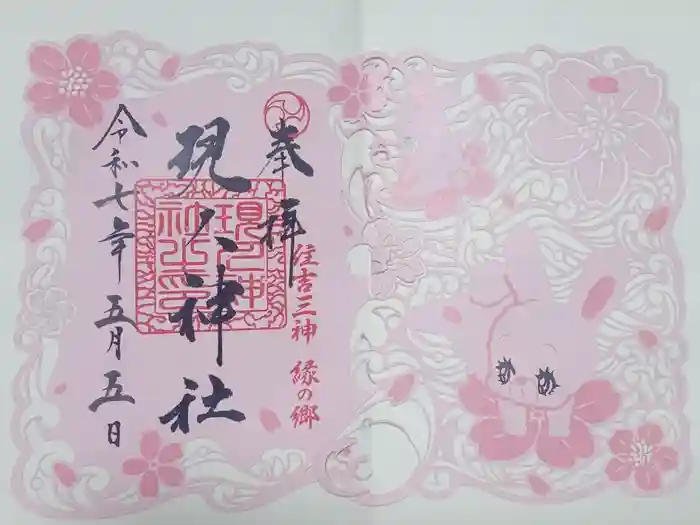 奉拝
住吉三神 縁の郷
現人神社
現人神社之印
令和七年 五月 五日